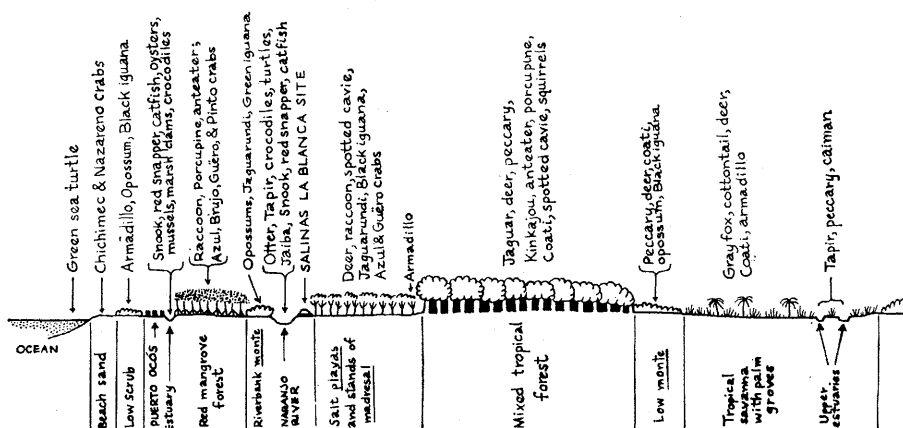 Green sea turtle
Chichimec & Nazareno crabs
Armadillo, Opossum, Black iguana
Snook, red snapper, catfish, oysters,
mussels, marsh clams, crocodiles
Raccoon, Porcupine, anteater;
Azul, Brujo, Guëro, & Pinto crabs
Opossums, Jaguarundi, Green iguana
Otter, Tapir, crocodiles, turtles,
Jaiba, Snook, red snapper, catfish
SALINAS LA BLANCA SITE
Deer, raccoon, spotted cavie,
Jaguarundi, Black iguana,
Azul & Guëro crabs
Armadillo
Jaguar, deer, peccary,
Kinkajou, anteater, porcupine,
Coati, spotted cavie, squirrels
Peccary, deer, coati,
opossum, Black iguana
Gray fox, cottontail, deer,
Coati, armadillo
Tapir, peccary, caiman
OCEAN
Beach sand
Low scrub
PUERTO OCÓS
Estuary
Red mangrove
forest
Riverbank monte
NARANJO
RIVER
Salt playas
and stands of
madresal
Mixed tropical
forest
Low monte
Tropical
savanna
with palm
groves
Upper
estuaries